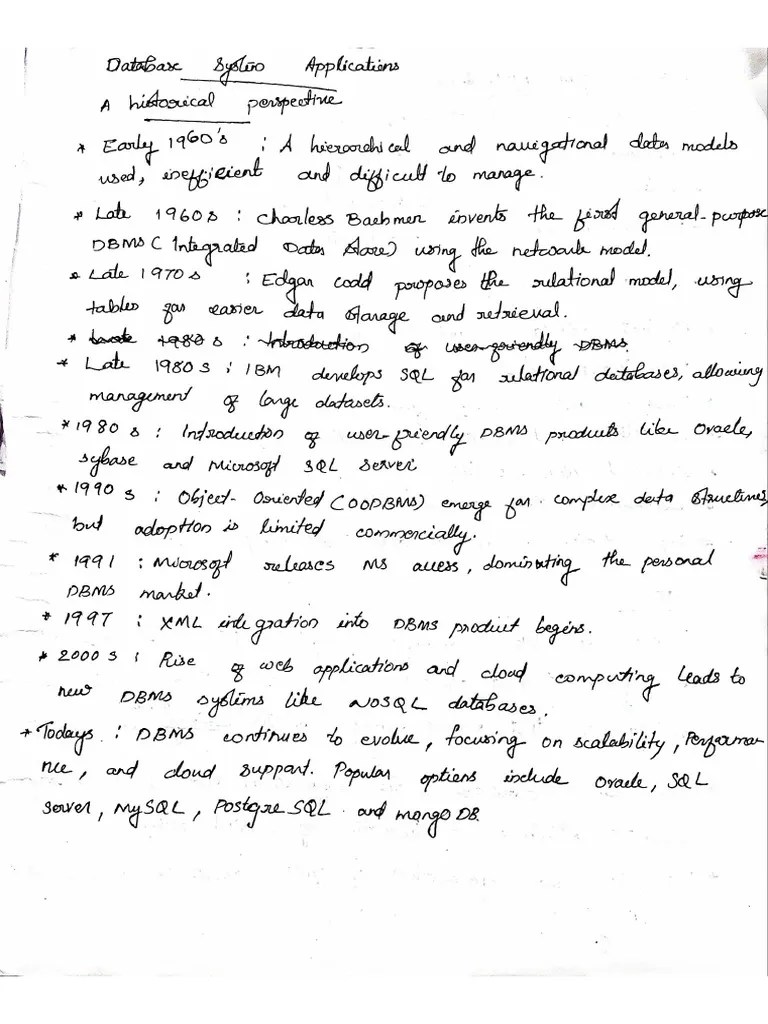 Database System Applications
A historical perspective
* Early 1960's : A hierarchical and navigational data models
used, inefficient and difficult to manage.
* Late 1960s : Charless Bachmen invents the first general-purpose
DBMS ( Integrated Data Store) using the network model.
* Late 1970s : Edgar codd proposes the relational model, using
tables for easier data storage and retrieval.
* 1980s : Introduction of user-friendly DBMS.
* Late 1980s : IBM develops SQL for relational databases, allowing
management of large datasets.
* 1980s : Introduction of user-friendly DBMS products like Oracle,
sybase and Microsoft SQL Server
* 1990s : Object-Oriented (OODBMS) emerge for complex data structures,
but adoption is limited commercially.
* 1991 : Microsoft releases MS access, dominating the personal
DBMS market.
* 1997 : XML integration into DBMS product begins.
* 2000s : Rise of web applications and cloud computing leads to
new DBMS systems like NOSQL databases.
* Todays : DBMS continues to evolve, focusing on scalability, Performa-
nce, and cloud support. Popular options include Oracle, SQL
Server, MySQL, PostgreSQL and mongo DB.